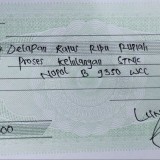 Delapan Ratus Ribu Rupiah
Proses Kehilangan STNK
Nopol B 9350 WCC
00